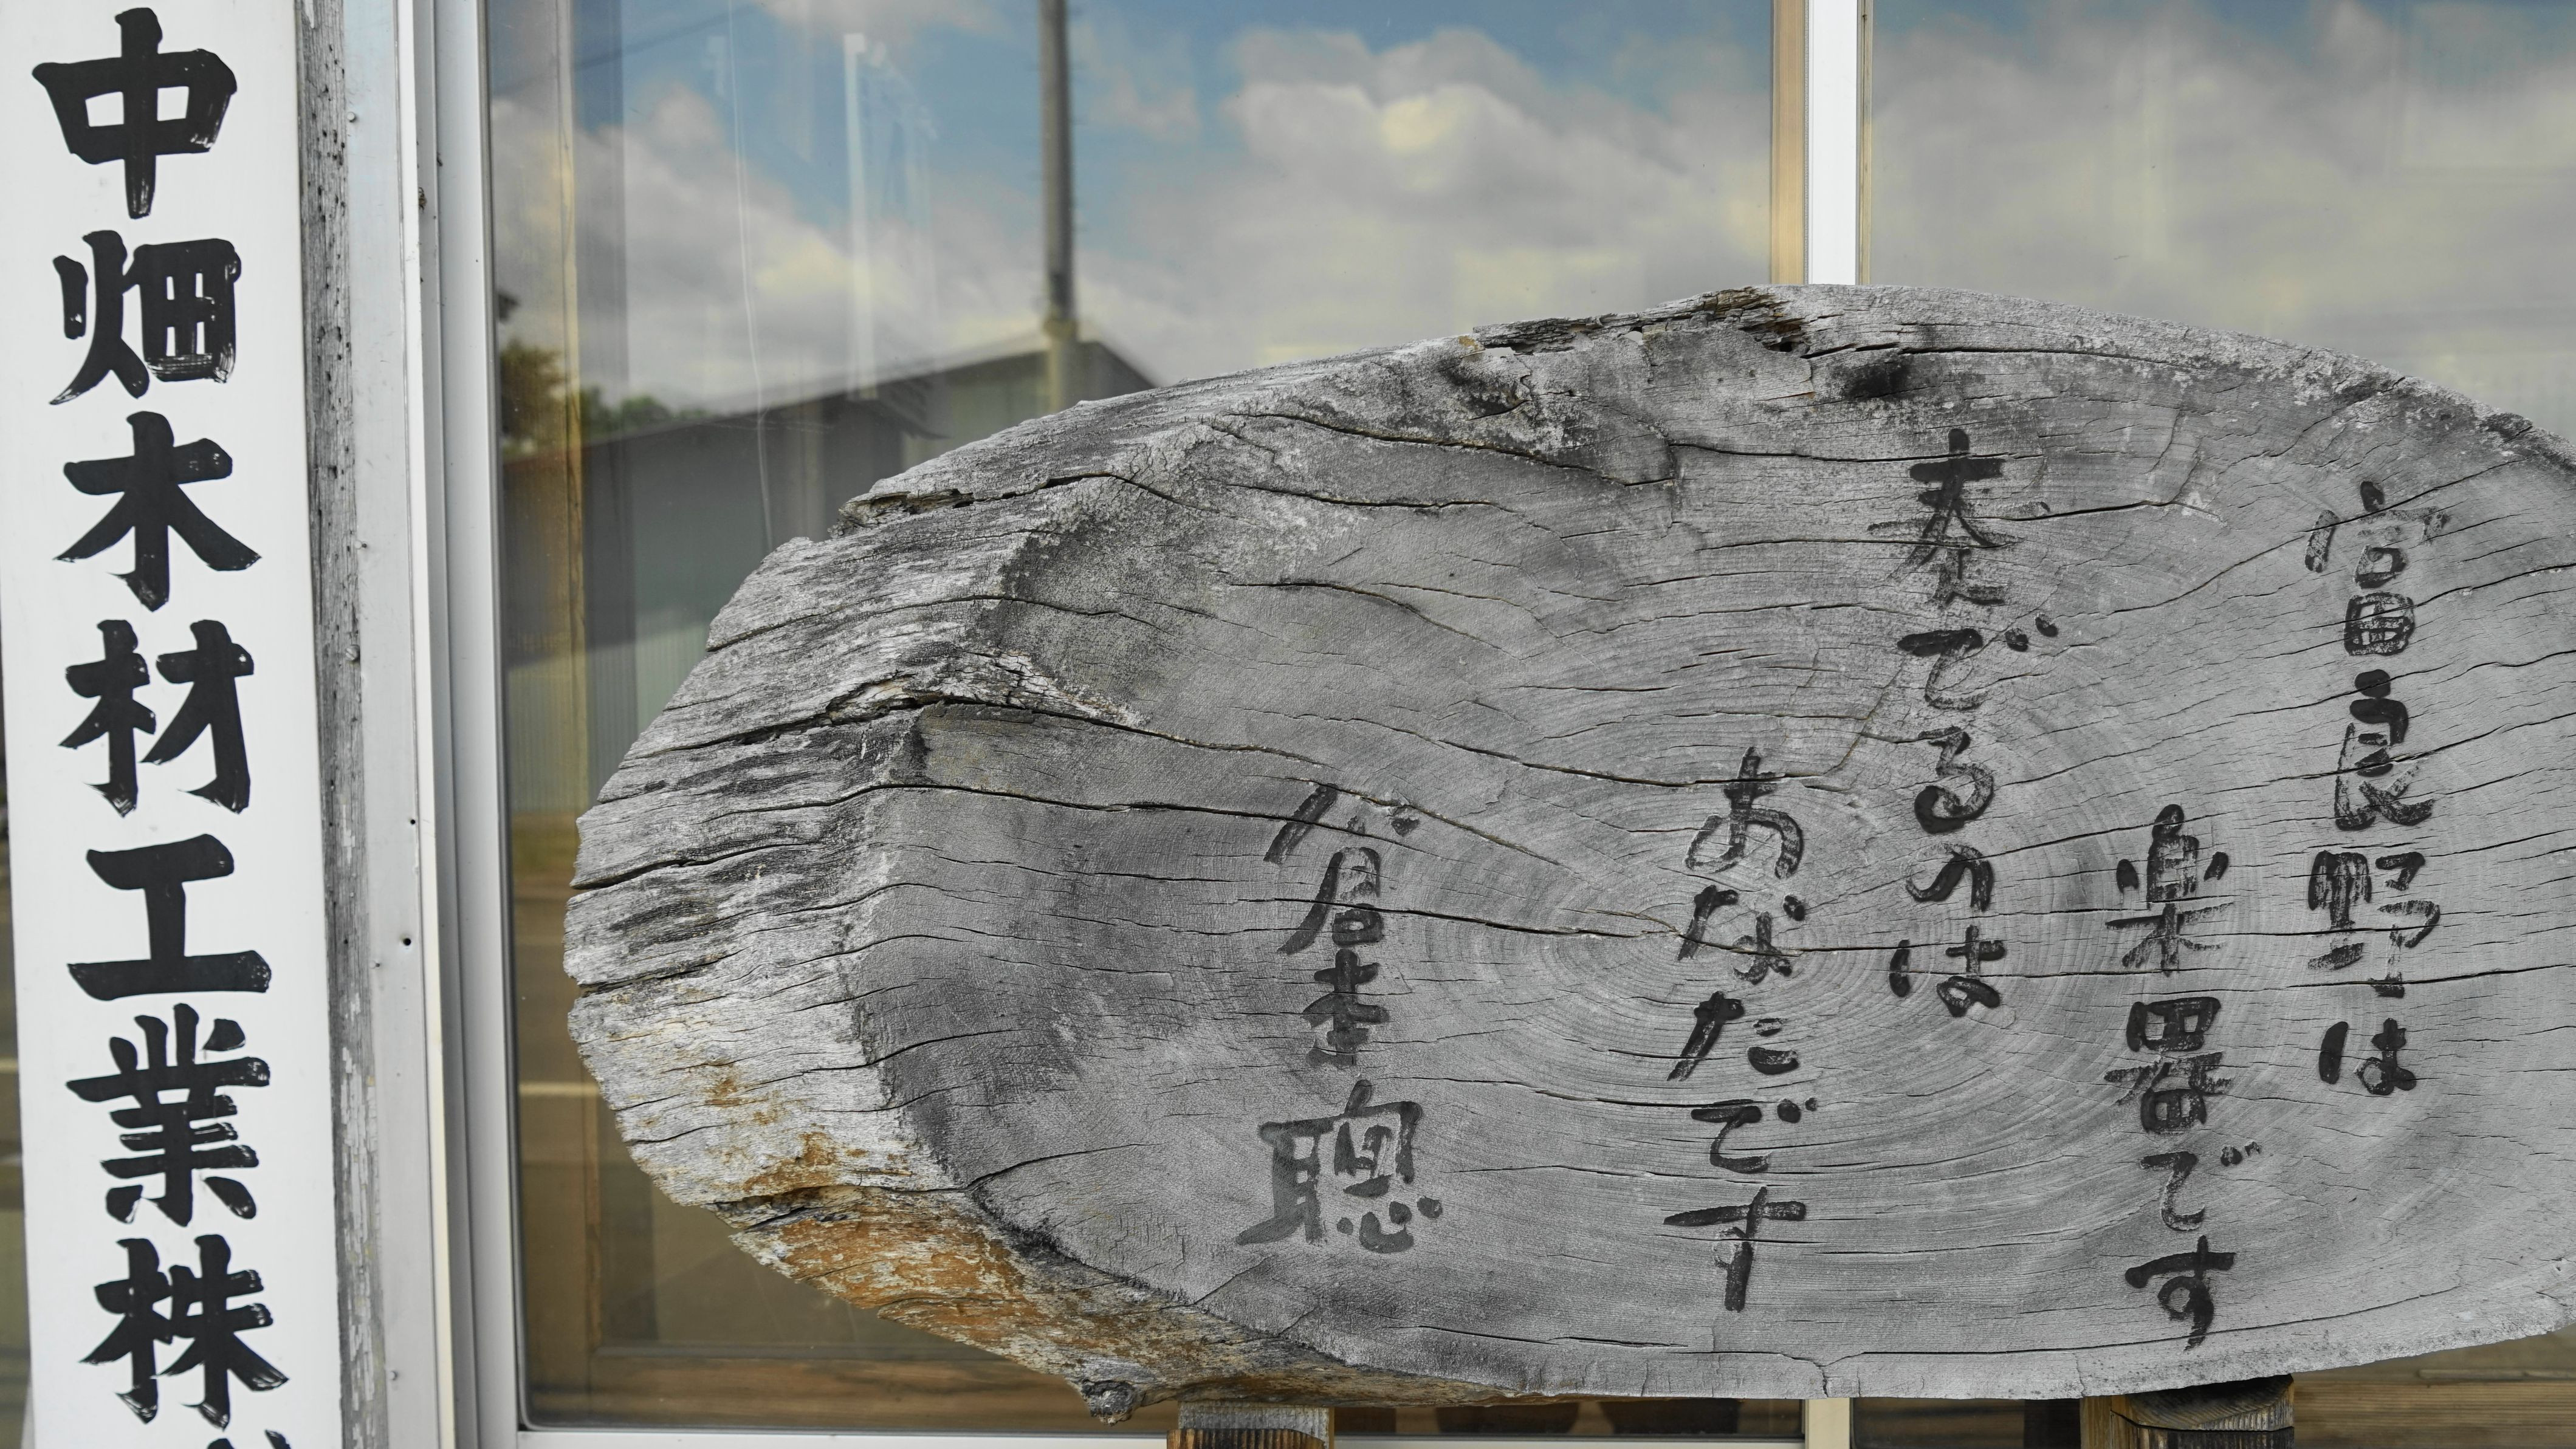 富良野は
楽器です
奏でるのは
あなたです
倉本聰
中畑木材工業株